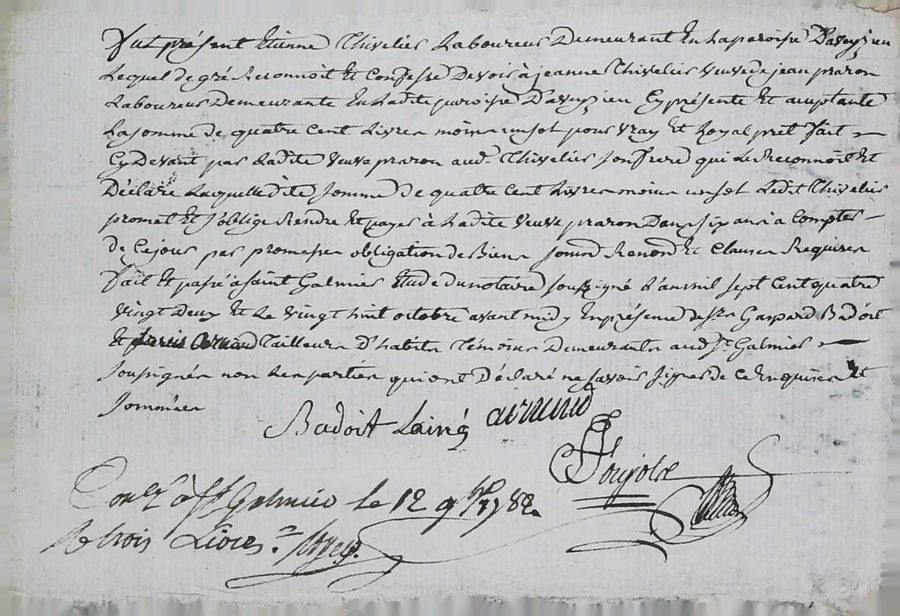 Fut présent Etienne Thivelier Laboureur Demeurant En Laparoisse Daveyzieu
Lequel de gré Reconnoit Et Confesse Devoir à jeanne Thivelier veuve de jean praron
Laboureur Demeurante En Ladite paroisse Daveyzieu Cy présente Et aceptante
La somme de quatre Cent Livres moins un sol pour vray Et Loyal prêt fait
Cy devant par Ladite veuve praron aud. Thivelier son frere qui Le Reconnoit Et
Déclare Laquelle dite somme de quatre Cent Livres moins un sol Ledit Thivelier
promet Et s'oblige Rendre Et payer à Ladite veuve praron Dans six ans à Compter
de Ce jour par promesse obligation de Biens soumd Renond Et Clauses Requises
fait Et passé à saint Galmier Etude du notaire soussigné L'an mil sept Cent quatre
vingt Deux Et Le vingt huit octobre avant midy En présence de Srs Gaspard Badoit
Et Tailleurs D'habits Témoins Demeurants aud. St. Galmier
soussignés non Les parties qui ont Déclaré ne savoir signer de Ce Enquises Et
sommées
Badoit Lainé arnaud
Conlé à St Galmier le 12 9bre 1782.
R trois Livres